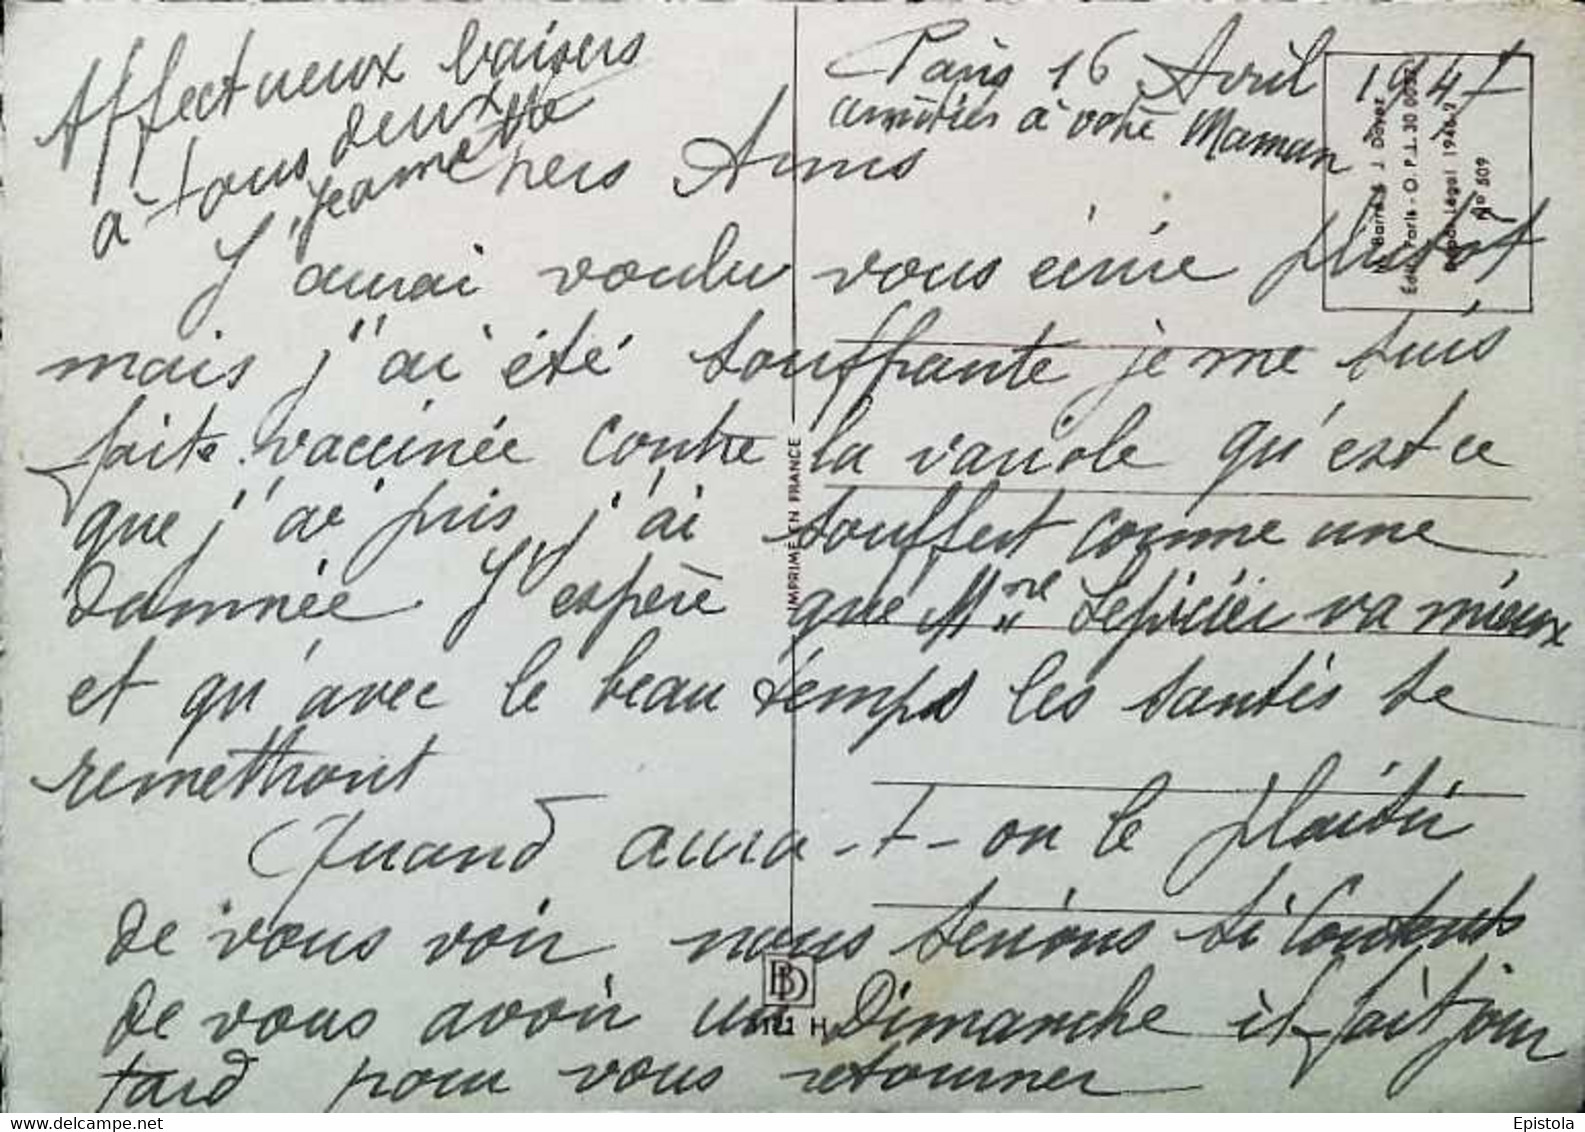 Affectueux baisers
à tous deux
Jeannette
Paris 16 Avril 1947
amitiés à votre Maman
Chers Amis
J'aurai voulu vous écrire plutôt
mais j'ai été souffrante je me suis
faite vaccinée contre la variole qu'est ce
que j'ai pris j'ai souffert comme une
damnée J'espère que Mme Lepicier va mieux
et qu'avec le beau temps les santés se
remettront
Quand aura-t-on le plaisir
de vous voir nous serions si Contents
de vous avoir un Dimanche il fait jour
tard pour vous retourner
IMPRIMÉ EN FRANCE
BD
H
Barré & J. Dayez
Paris - O. P. L. 30.0
Légal 1946-2
No 509
www.delcampe.net
Epistola